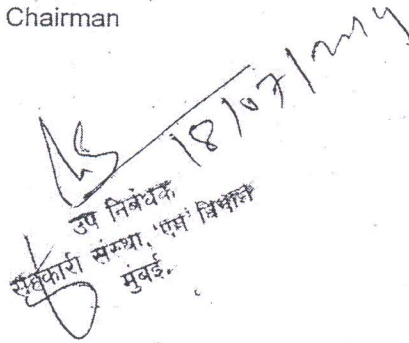 Chairman
18/07/2014
उप निबंधक
सहकारी संस्था, 'एम' विभाग
मुंबई.